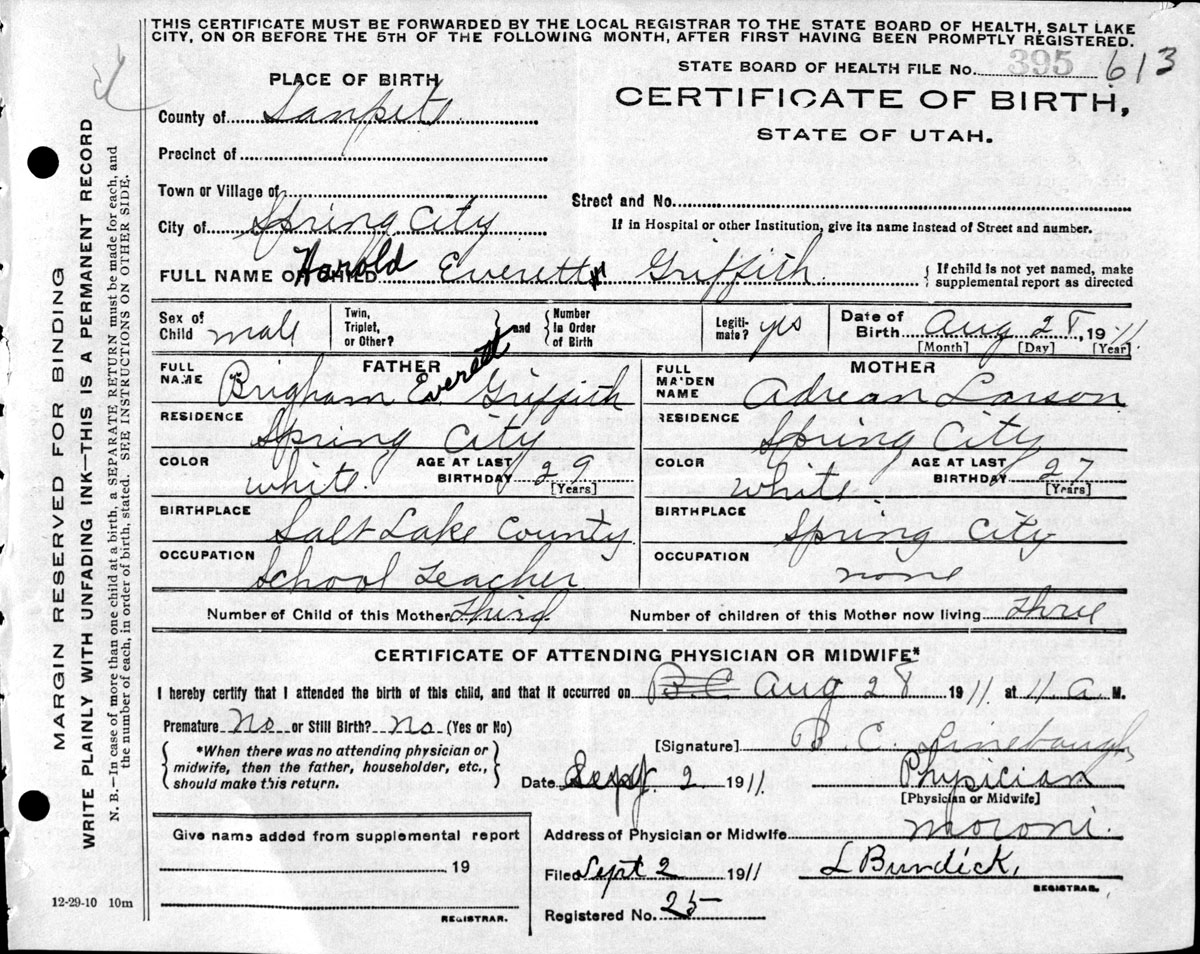 THIS CERTIFICATE MUST BE FORWARDED BY THE LOCAL REGISTRAR TO THE STATE BOARD OF HEALTH, SALT LAKE
CITY, ON OR BEFORE THE 5TH OF THE FOLLOWING MONTH, AFTER FIRST HAVING BEEN PROMPTLY REGISTERED.
MARGIN RESERVED FOR BINDING
WRITE PLAINLY WITH UNFADING INK—THIS IS A PERMANENT RECORD
N. B.—In case of more than one child at a birth, a SEPARATE RETURN must be made for each, and
the number of each, in order of birth, stated. SEE INSTRUCTIONS ON OTHER SIDE.
STATE BOARD OF HEALTH FILE No. 395 613
CERTIFICATE OF BIRTH,
STATE OF UTAH.
PLACE OF BIRTH
County of Sanpete
Precinct of
Town or Village of
City of Spring City
Street and No.
If in Hospital or other Institution, give its name instead of Street and number.
FULL NAME OF CHILD Harold Everett Griffith
{ If child is not yet named, make
supplemental report as directed
Sex of
Child male
Twin,
Triplet,
or Other?
} and {
Number
in Order
of Birth
Legiti-
mate? yes
Date of
Birth Aug 28 1911
[Month] [Day] [Year]
FATHER
FULL
NAME Brigham Everett Griffith
RESIDENCE Spring City
COLOR White
AGE AT LAST
BIRTHDAY 29
[Years]
BIRTHPLACE Salt Lake County
OCCUPATION School Teacher
MOTHER
FULL
MAIDEN
NAME Adrean Larson
RESIDENCE Spring City
COLOR White
AGE AT LAST
BIRTHDAY 27
[Years]
BIRTHPLACE Spring City
OCCUPATION none
Number of Child of this Mother Third
Number of children of this Mother now living three
CERTIFICATE OF ATTENDING PHYSICIAN OR MIDWIFE*
I hereby certify that I attended the birth of this child, and that it occurred on B.C. Aug 28 1911 at 11 a M.
Premature No or Still Birth? No (Yes or No)
{ *When there was no attending physician or
midwife, then the father, householder, etc.,
should make this return. }
[Signature] B. C. Linebaugh
Date Sept. 2 1911.
Physician
[Physician or Midwife]
Address of Physician or Midwife Moroni.
Filed Sept 2 1911
L Burdick,
REGISTRAR.
Registered No. 25
Give name added from supplemental report
19
REGISTRAR.
12-29-10 10m